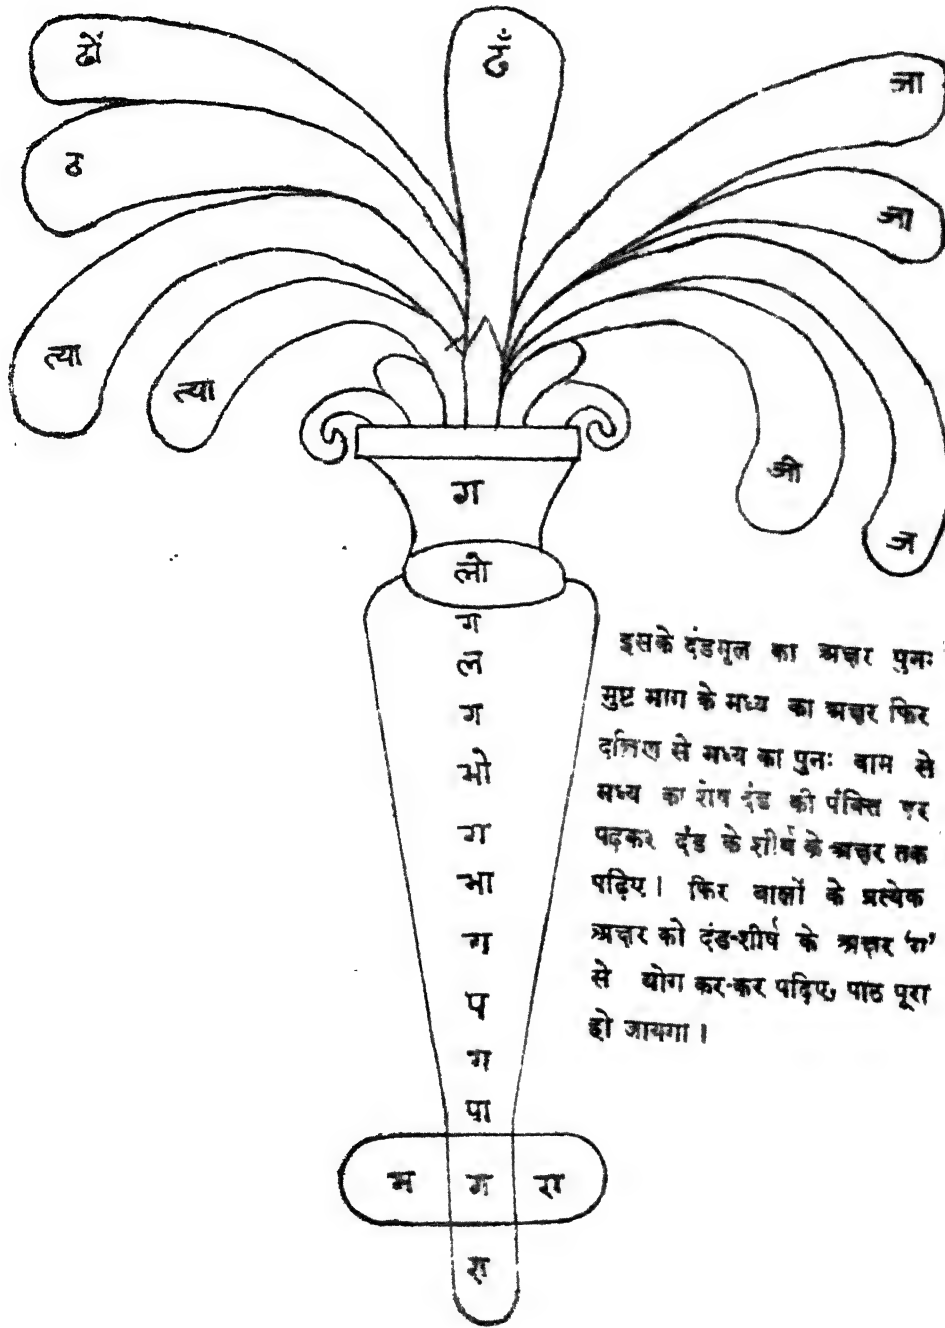 ढों
ढः
जा
ठ
जा
त्या
त्या
जी
ज
ग
लो
ग
ल
ग
भो
ग
भा
ग
प
ग
पा
म ग रा
रा
इसके दंडमूल का अक्षर पुनः
मुष्ट भाग के मध्य का अक्षर फिर
दक्षिण से मध्य का पुनः बाम से
मध्य का शेष दंड की पंक्ति पर
पढ़कर दंड के शीर्ष के अक्षर तक
पढ़िए। फिर बालों के प्रत्येक
अक्षर को दंड-शीर्ष के अक्षर 'ग'
से योग कर-कर पढ़िए, पाठ पूरा
हो जायगा।